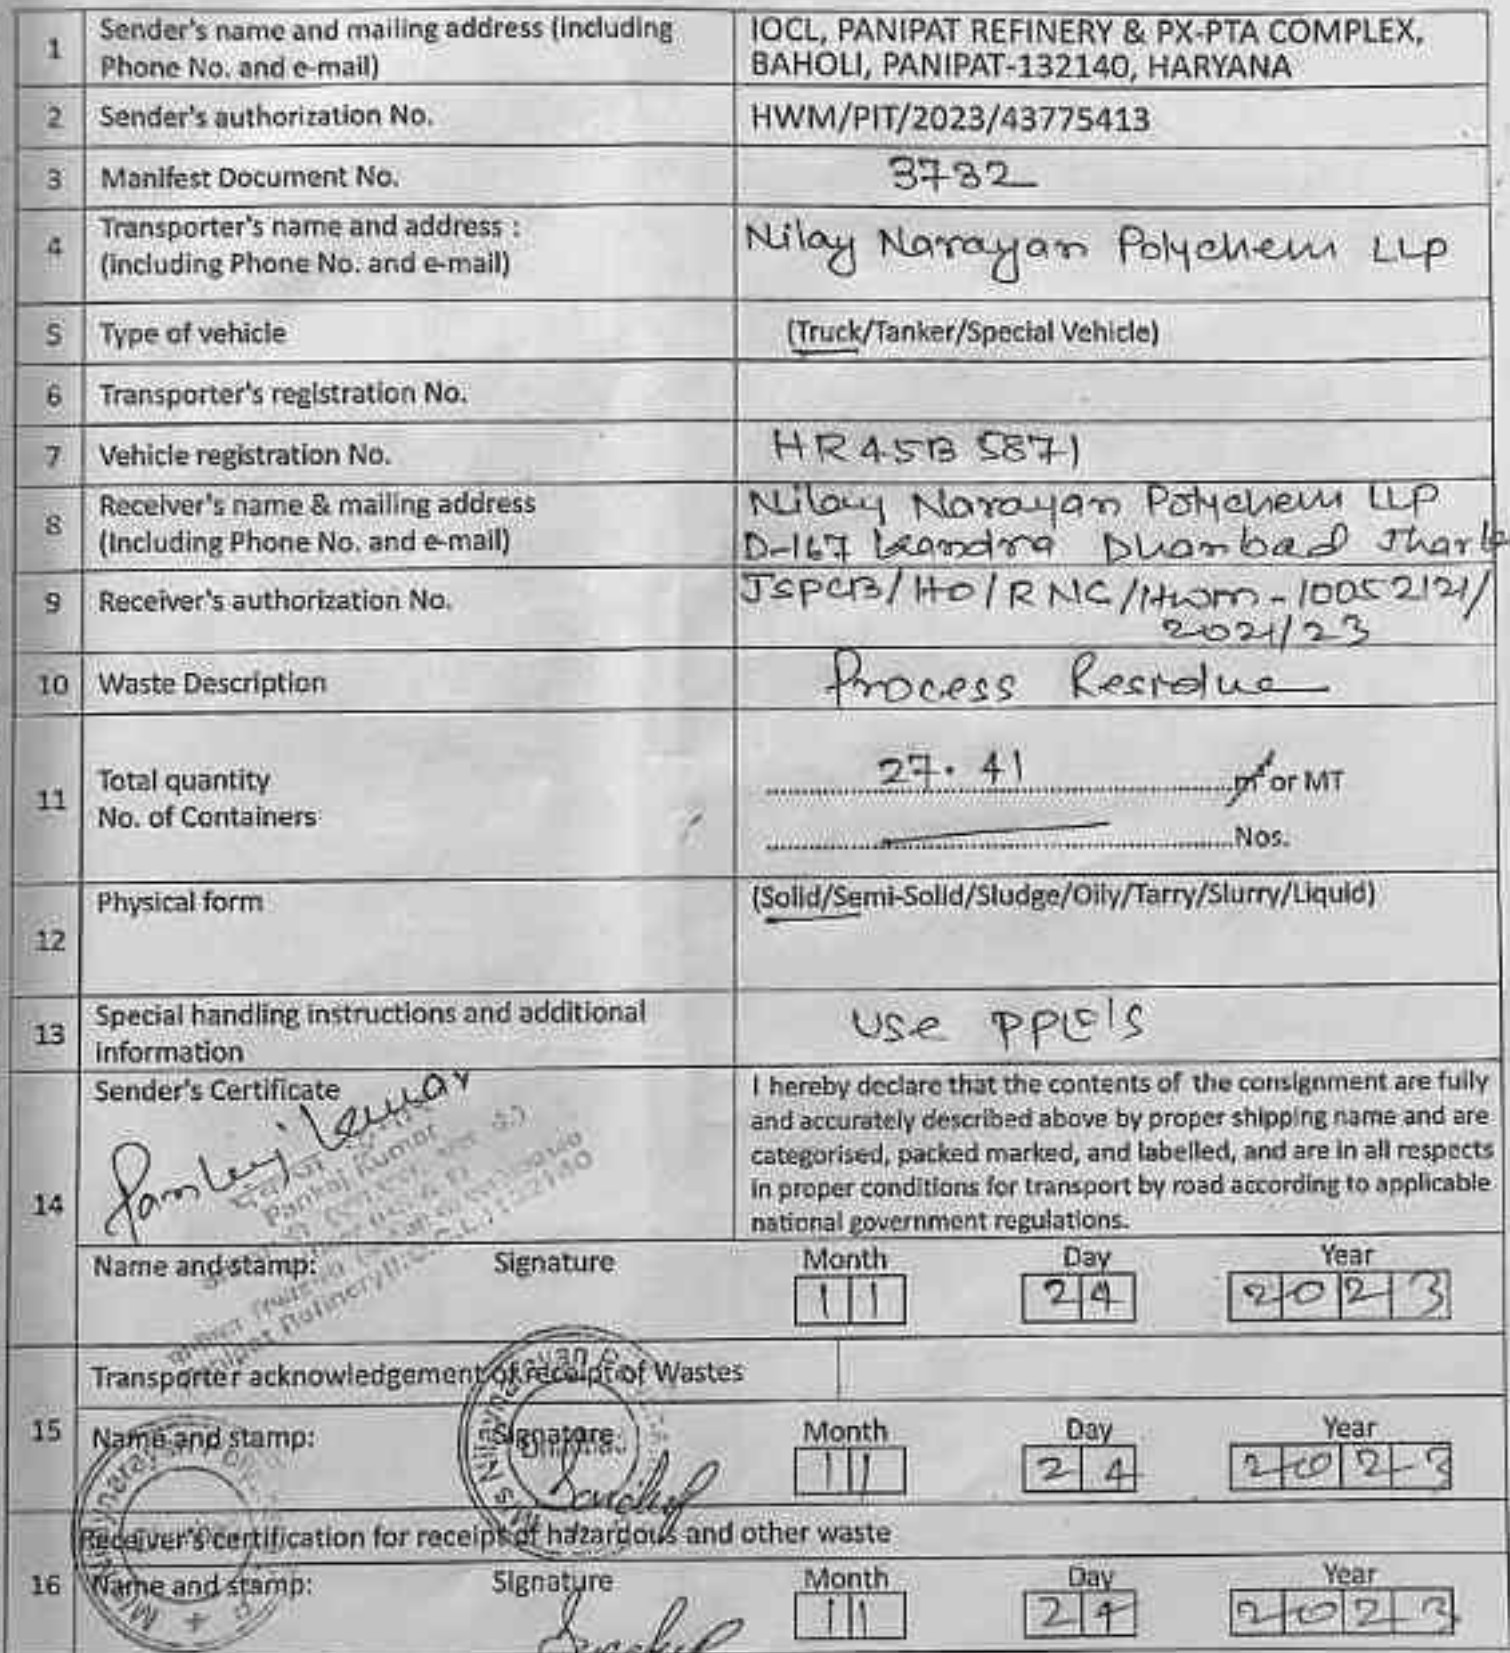 1 Sender's name and mailing address (including Phone No. and e-mail) IOCL, PANIPAT REFINERY & PX-PTA COMPLEX, BAHOLI, PANIPAT-132140, HARYANA
2 Sender's authorization No. HWM/PIT/2023/43775413
3 Manifest Document No. 3732
4 Transporter's name and address :
(including Phone No. and e-mail) Nilay Narayan Polychem LLP
5 Type of vehicle (Truck/Tanker/Special Vehicle)
6 Transporter's registration No.
7 Vehicle registration No. HR45B 5871
8 Receiver's name & mailing address
(Including Phone No. and e-mail)
Nilay Narayan Polychem LLP
D-167 Kandra Dhanbad
9 Receiver's authorization No. JSPCB/HO/RNC/HWM-10052121/
2021/23
10 Waste Description Process Residue
11 Total quantity 27.41 or MT
No. of Containers Nos.
12 Physical form (Solid/Semi-Solid/Sludge/Oily/Tarry/Slurry/Liquid)
13 Special handling instructions and additional
information
Use PPE's
14 Sender's Certificate
Pankaj Kumar
Pankaj Kumar
I hereby declare that the contents of the consignment are fully
and accurately described above by proper shipping name and are
categorised, packed marked, and labelled, and are in all respects
in proper conditions for transport by road according to applicable
national government regulations.
Name and stamp: Signature Month Day Year
11 24 2023
15 Transporter acknowledgement of receipt of Wastes
Name and stamp: Signature Month Day Year
11 24 2023
Receiver's certification for receipt of hazardous and other waste
16 Name and stamp: Signature Month Day Year
11 24 2023